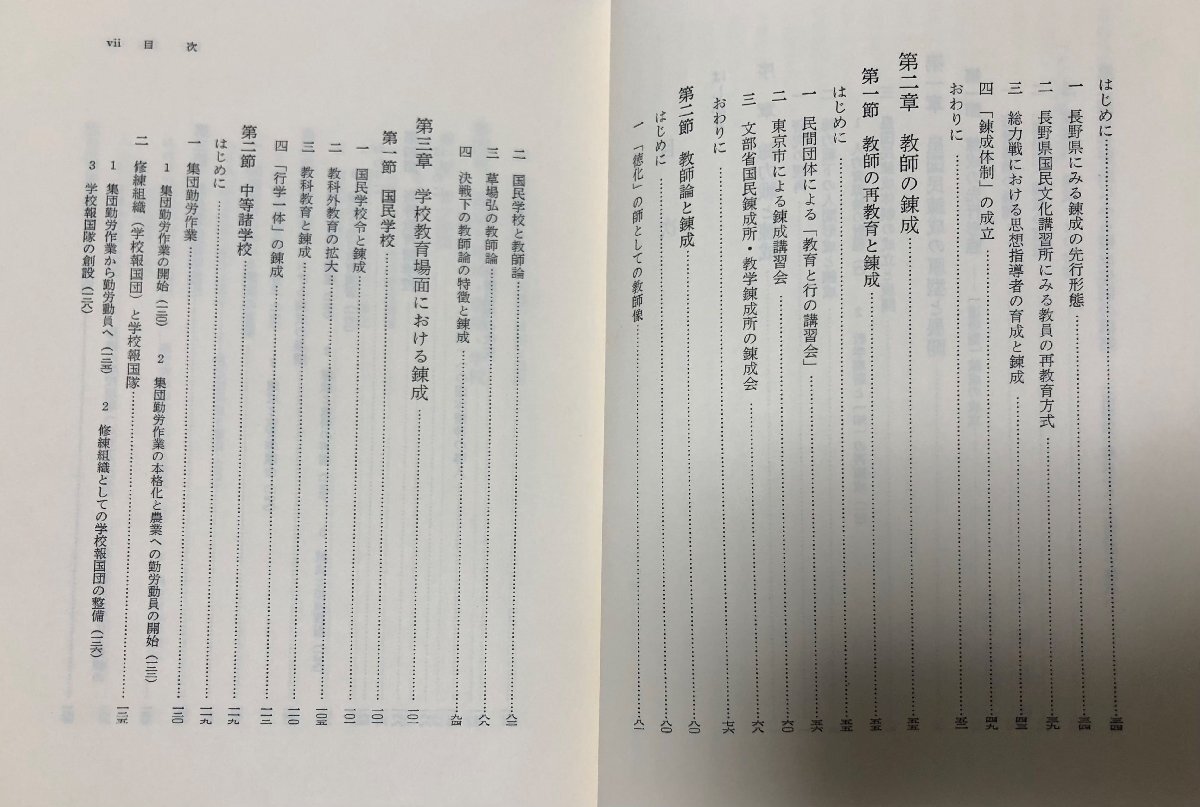 はじめに……三四
一　長野県にみる錬成の先行形態……三四
二　長野県国民文化講習所にみる教員の再教育方式……三九
三　総力戦における思想指導者の育成と錬成……四三
四　「錬成体制」の成立……四九
おわりに……五二
第二章　教師の錬成……五五
第一節　教師の再教育と錬成……五五
はじめに……五五
一　民間団体による「教育と行の講習会」……五六
二　東京市による錬成講習会……六〇
三　文部省国民錬成所・教学錬成所の錬成会……六八
おわりに……七六
第二節　教師論と錬成……八〇
はじめに……八〇
一　「徳化」の師としての教師像……八一
vii　目　次
二　国民学校と教師論……八三
三　草場弘の教師論……八八
四　決戦下の教師論の特徴と錬成……九四
第三章　学校教育場面における錬成……一〇一
第一節　国民学校……一〇一
一　国民学校令と錬成……一〇一
二　教科外教育の拡大……一〇五
三　教科教育と錬成……一一〇
四　「行学一体」の錬成……一一三
第二節　中等諸学校……一一九
はじめに……一一九
一　集団勤労作業……一二〇
1　集団勤労作業の開始（一二〇）　2　集団勤労作業の本格化と農業への勤労動員の開始（一二三）
二　修練組織（学校報国団）と学校報国隊……一二五
1　集団勤労作業から勤労動員へ（一二五）　2　修練組織としての学校報国団の整備（一二六）
3　学校報国隊の創設（一二八）